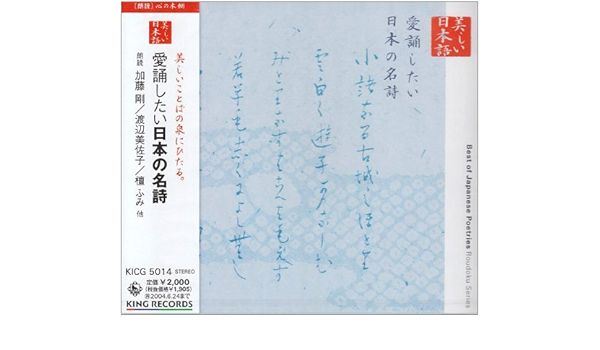 [朗読] 心の本棚
美しい日本語
美しいことばの泉にひたる。
愛誦したい日本の名詩
朗読 加藤 剛／渡辺美佐子／檀 ふみ 他
KICG 5014 STEREO
定価 ¥2,000
(税抜価格¥1,905)
2004.6.24まで
KING RECORDS
美しい
日本語
愛誦したい
日本の名詩
小諸なる古城のほとり
雲白く遊子かなしむ
Best of Japanese Poetries Roudoku Series